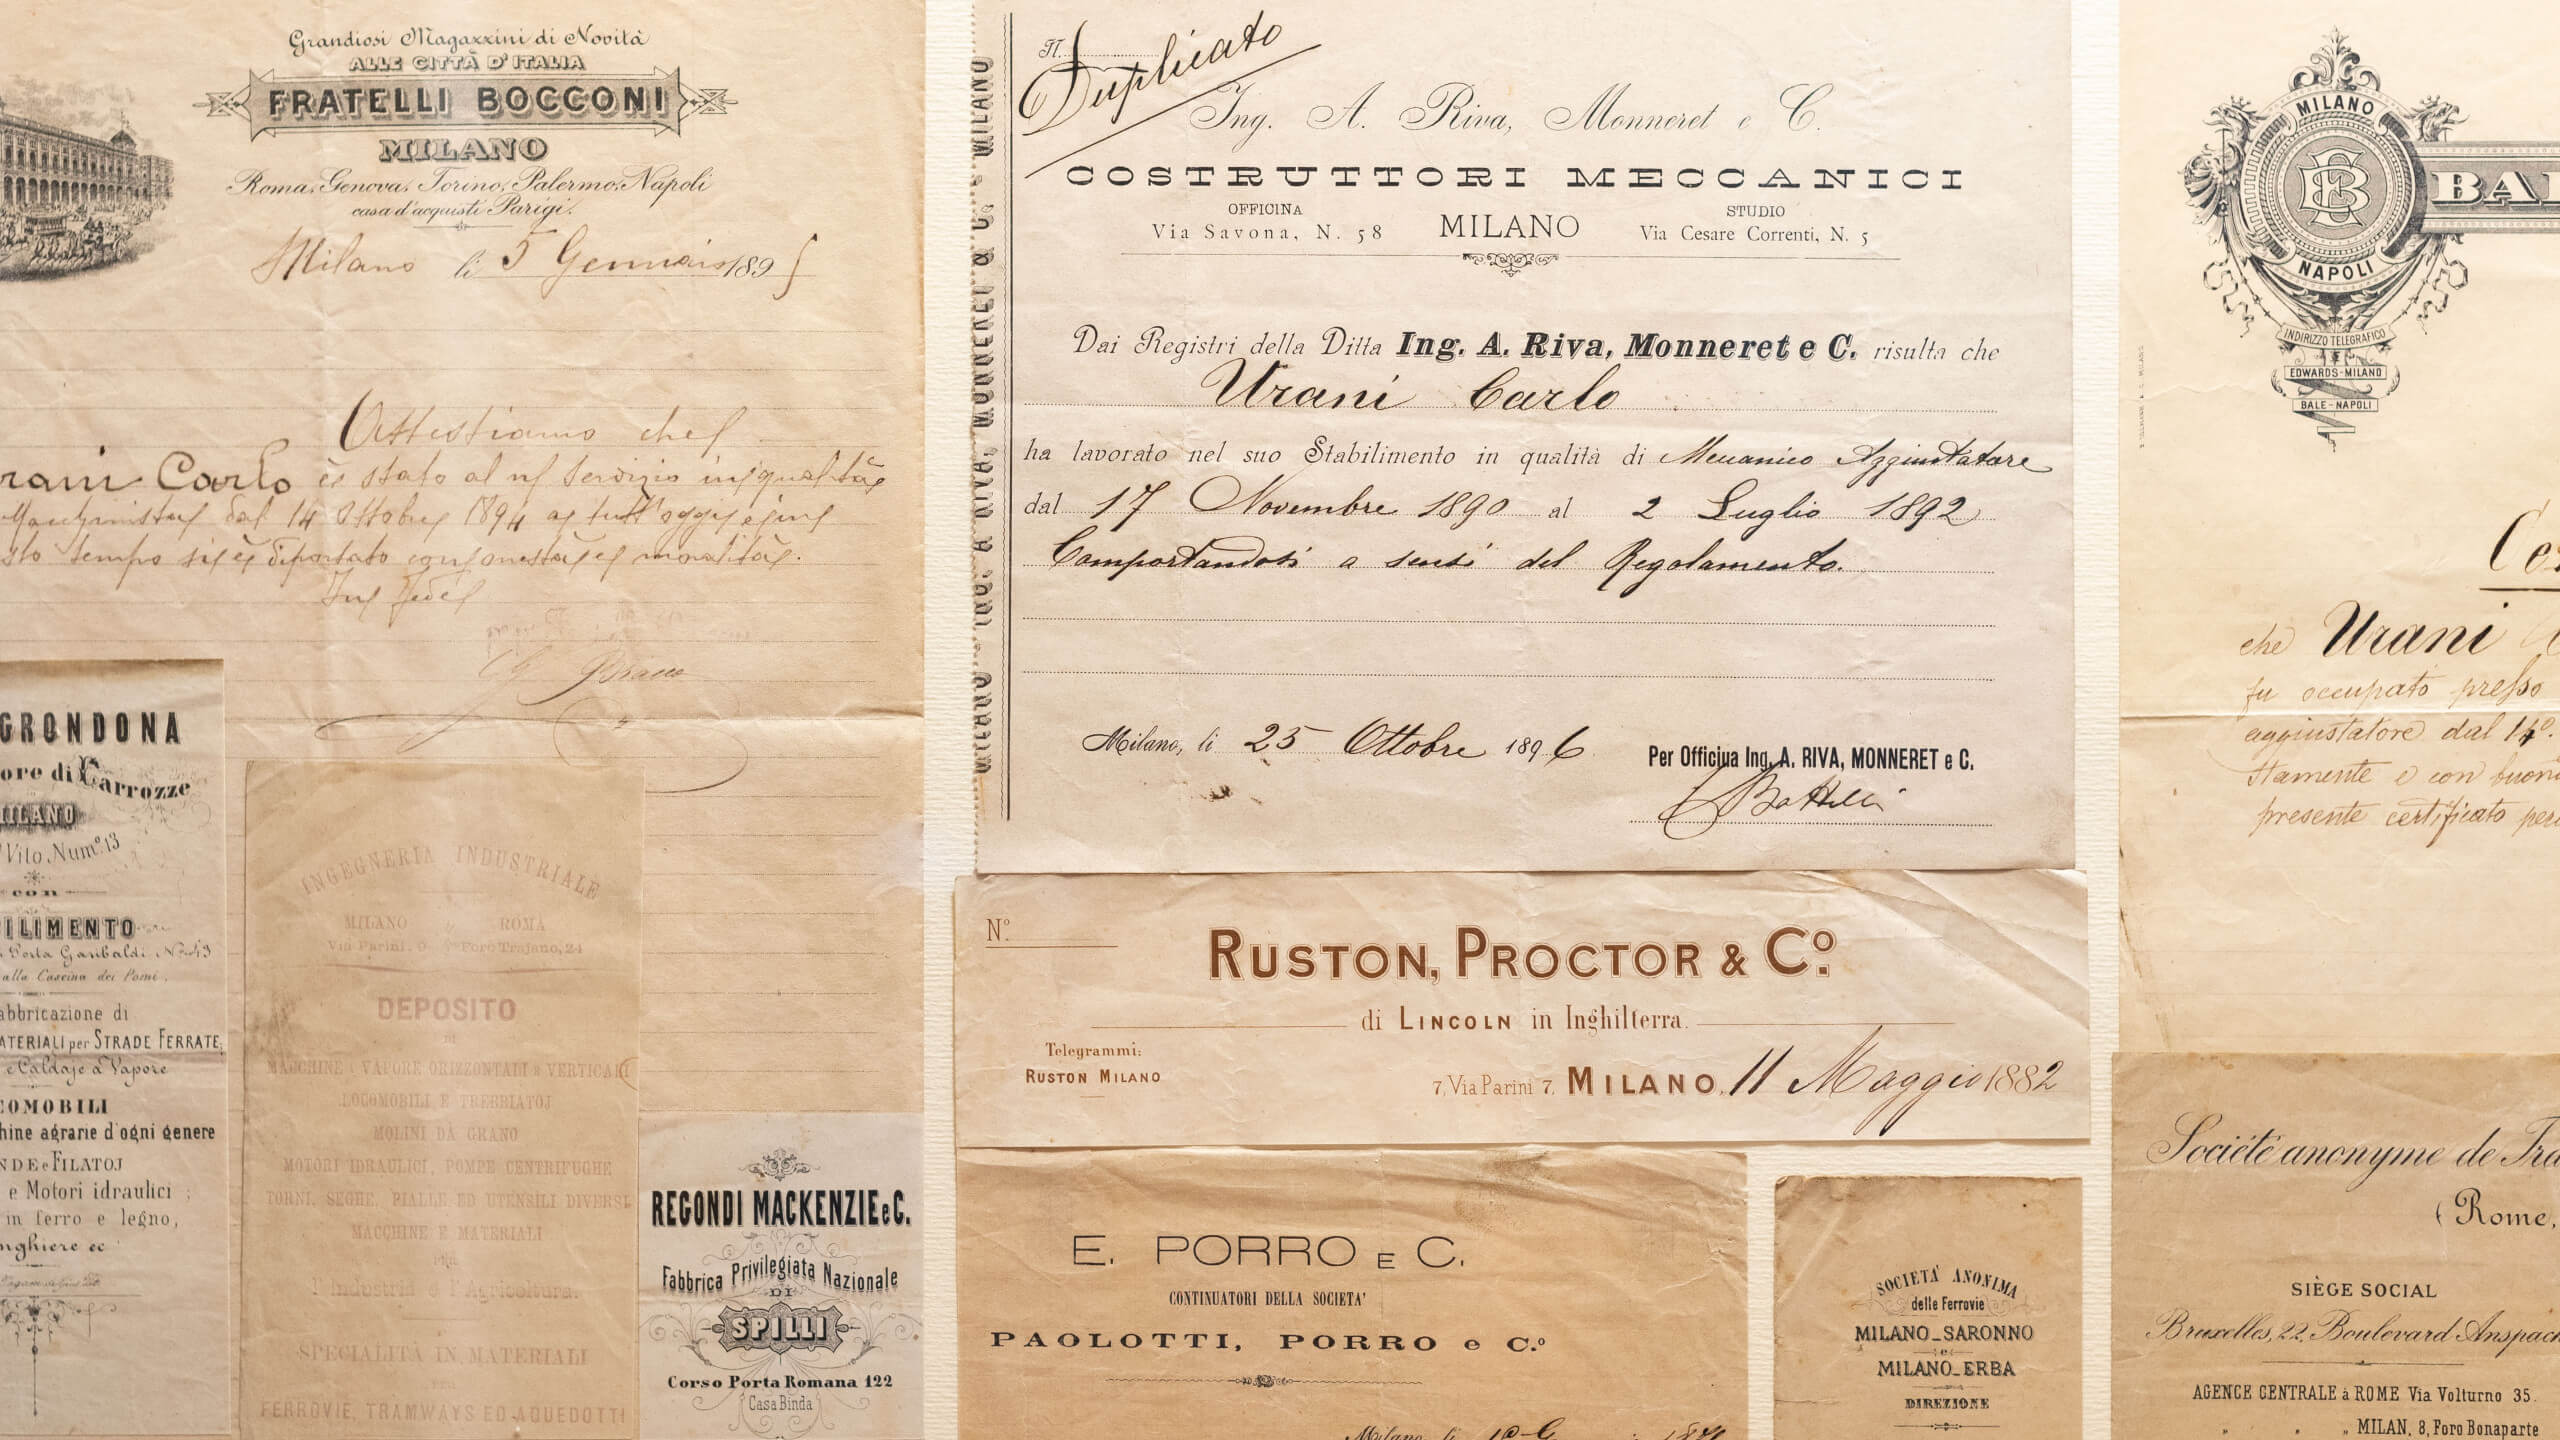 Grandiosi Magazzini di Novità
ALLE CITTÀ D'ITALIA
FRATELLI BOCCONI
MILANO
Roma, Genova, Torino, Palermo, Napoli
casa d'acquisti Parigi.
Milano li 5 Gennaio 1895
Attestiamo che
rani Carlo è stato al ns servizio in qualità
dal 14 Ottobre 1894 a tutt'oggi e in
sto tempo si è diportato con onestà e moralità.
In fede
GRONDONA
ore di Carrozze
MILANO
Vito, Num.º 13
con
ILIMENTO
Porta Garibaldi, N.º 13
alla Cascina dei Pomi,
abbricazione di
ATERIALI per STRADE FERRATE;
e Caldaje a Vapore
COMOBILI
hine agrarie d'ogni genere
NDE e FILATOJ
e Motori idraulici ;
in ferro e legno,
nghiere ec
INGEGNERIA INDUSTRIALE
MILANO ROMA
Via Parini, 9 Foro Trajano, 24
DEPOSITO
DI
MACCHINE A VAPORE ORIZZONTALI E VERTICALI
LOCOMOBILI E TREBBIATOJ
MOLINI DA GRANO
MOTORI IDRAULICI, POMPE CENTRIFUGHE
TORNI, SEGHE, PIALLE ED UTENSILI DIVERSI
MACCHINE E MATERIALI
PER
l'Industria e l'Agricoltura.
SPECIALITÀ IN MATERIALI
PER
FERROVIE, TRAMWAYS ED AQUEDOTTI
REGONDI MACKENZIE e C.
Fabbrica Privilegiata Nazionale
DI
SPILLI
Corso Porta Romana 122
Casa Binda
MILANO - ING. A. RIVA, MONNERET & C. - MILANO
N.
Duplicato
Ing. A. Riva, Monneret e C.
COSTRUTTORI MECCANICI
OFFICINA
Via Savona, N. 58
MILANO
STUDIO
Via Cesare Correnti, N. 5
Dai Registri della Ditta Ing. A. Riva, Monneret e C. risulta che
Urani Carlo
ha lavorato nel suo Stabilimento in qualità di Meccanico Aggiustatore
dal 17 Novembre 1890 al 2 Luglio 1892
Comportandosi a sensi del Regolamento.
Milano, li 25 Ottobre 1896
Per Officiua Ing. A. RIVA, MONNERET e C.
N.º
RUSTON, PROCTOR & Cº.
di LINCOLN in Inghilterra.
Telegrammi:
RUSTON MILANO
7, Via Parini 7, MILANO, 11 Maggio 1882
E. PORRO E C.
CONTINUATORI DELLA SOCIETA'
PAOLOTTI, PORRO e C.º
Milano li
SOCIETA' ANONIMA
delle Ferrovie
MILANO_SARONNO
e
MILANO_ERBA
DIREZIONE
MILANO
BE
NAPOLI
BAL
INDIRIZZO TELEGRAFICO
EDWARDS-MILANO
BALE-NAPOLI
Ce
che Urani
fu occupato presso
aggiustatore dal 14º.
stamente e con buon
presente certificato per
Société anonyme de Tra
(Rome,
SIÈGE SOCIAL
Bruxelles, 22, Boulevard Anspach
AGENCE CENTRALE à ROME Via Volturno 35.
" " MILAN, 8, Foro Bonaparte